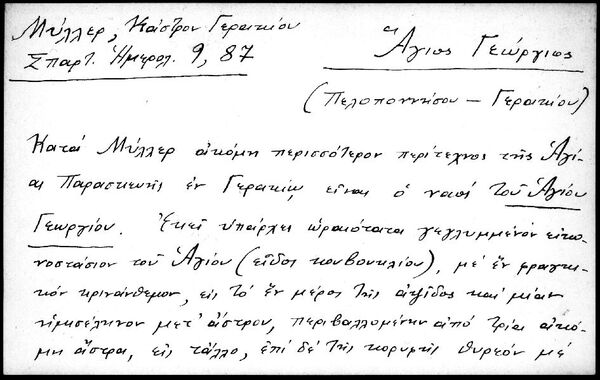 Μύλλερ, Κάστρον Γερακίου
Σπαρτ. Ημερολ. 9, 87
Ἅγιος Γεώργιος
(Πελοποννήσου – Γερακίου)
Κατά Μύλλερ ἀκόμη περισσότερον περίτεχνος τῆς Ἁγί-
ας Παρασκευῆς ἐν Γερακίῳ, εἶναι ὁ ναός τοῦ Ἁγίου
Γεωργίου. Ἐκεῖ ὑπάρχει ὡραιότατα γεγλυμμένον εἰκο-
νοστάσιον τοῦ Ἁγίου (εἶδος κουβουκλίου), μέ ἕν φραγκι-
κόν κρινάνθεμον, εἰς τό ἕν μέρος τῆς ἁψῖδος καί μίαν
ἡμισέληνον μετ' ἄστρου, περιβαλλομένην ἀπό τρία ἀκό-
μη ἄστρα, εἰς τἄλλο, ἐπί δέ τῆς κορυφῆς θυρεόν μέ